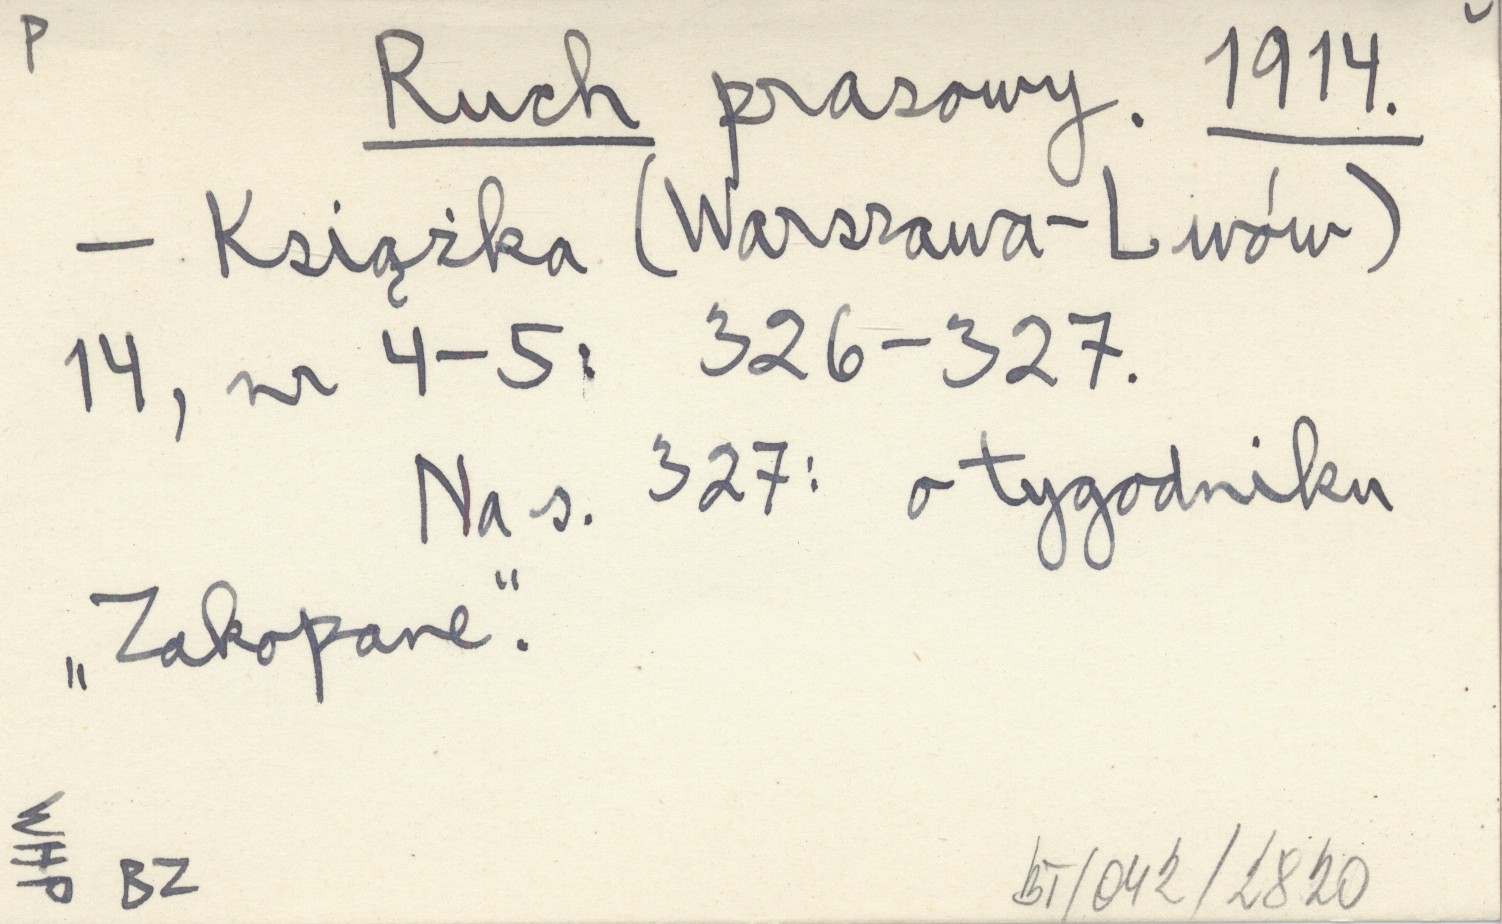 P
Ruch prasowy. 1914.
— Książka (Warszawa-Lwów)
14, nr 4-5: 326-327.
Na s. 327: o tygodniku
„Zakopane".
WHP
BZ
BT/042/2820